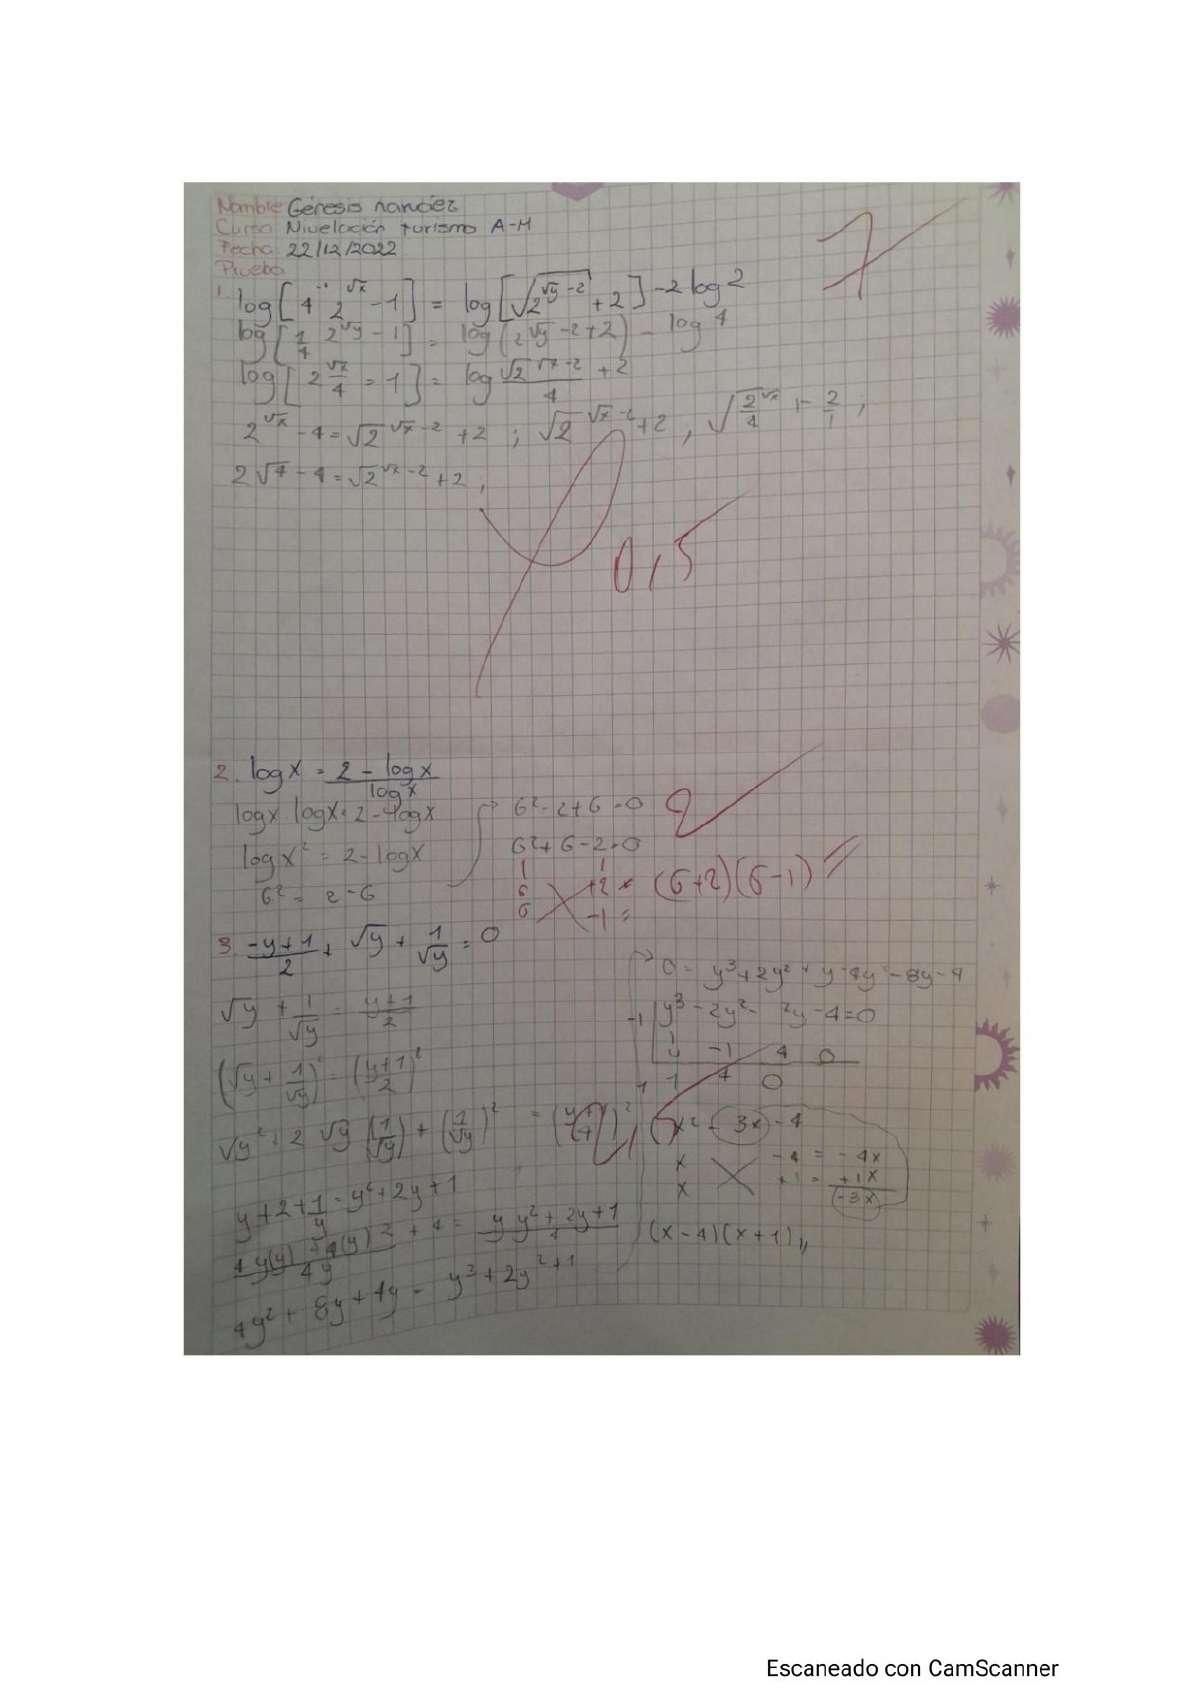 Nombre Génesis narváez
Curso Nivelación turismo A-M
Fecha 22/12/2022
Prueba
1. log[4 2^√x - 1] = log[√2^√y-2 + 2] - 2 log 2
log[1/4 2^√y - 1] = log(2^√y -2+2) - log 4
log[2 √x/4 = 1] = log √2^√x-2 / 4 + 2
2^√x - 4 = √2^√x-2 + 2 ; √2^√x-2 + 2 ,
2√4 - 4 = √2^√x-2 + 2 ,
7
0,5
2. log x = 2 - log x / log x
log x log x = 2 - log x
log x² = 2 - log x
6² = 2 - 6
6² - 2 + 6 = 0
6² + 6 - 2 = 0
6 +2 = (6+2)(6-1)
6 -1 =
2
3. -y+1/2 + √y + 1/√y = 0
√y + 1/√y = y+1/2
(√y + 1/√y)² = (y+1/2)²
√y² + 2 √y (1/√y) + (1/√y)² =
y + 2 + 1/y = y² + 2y + 1
4y² + 8y + 4 = y³ + 2y² + 1
0 = y³ + 2y² + y - 4y² - 8y - 4
y³ - 2y² - 7y - 4 = 0
x² - 3x - 4
x -4 = -4x
x +1 = +1x
-3x
(x-4)(x+1)
Escaneado con CamScanner